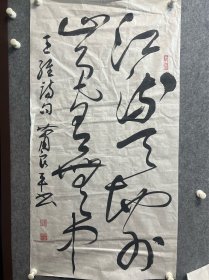 江流天地外
山色有無中
王维诗句